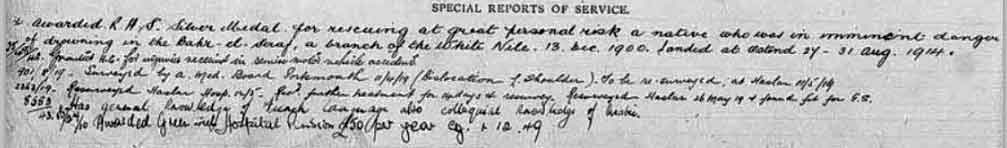 SPECIAL REPORTS OF SERVICE.
Awarded R.H.S. Silver Medal for rescuing at great personal risk a native who was in imminent danger
of drowning in the Bahr-el-Seraf, a branch of the White Nile. 13 Dec. 1900. Landed at Ostend 27-31 Aug. 1914.
Granted H.C. for injuries received in service motor vehicle accident.
901/8/19. Surveyed by a Med. Board Portsmouth (Dislocation of Shoulder). To be re-surveyed, at Haslar
Resurveyed Haslar Hosp. further treatment for days & resurvey. Resurveyed Haslar 26 May 19 & found fit for G.S.
8583 Has general knowledge of French language also colloquial knowledge of
Awarded Green Hospital Pension £50 per year 12.49